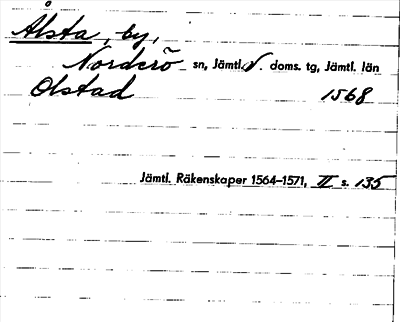 Ålsta, by,
Norderö sn, Jämtl. N. doms. tg, Jämtl. län
Olstad 1568
Jämtl. Räkenskaper 1564–1571, II s. 135